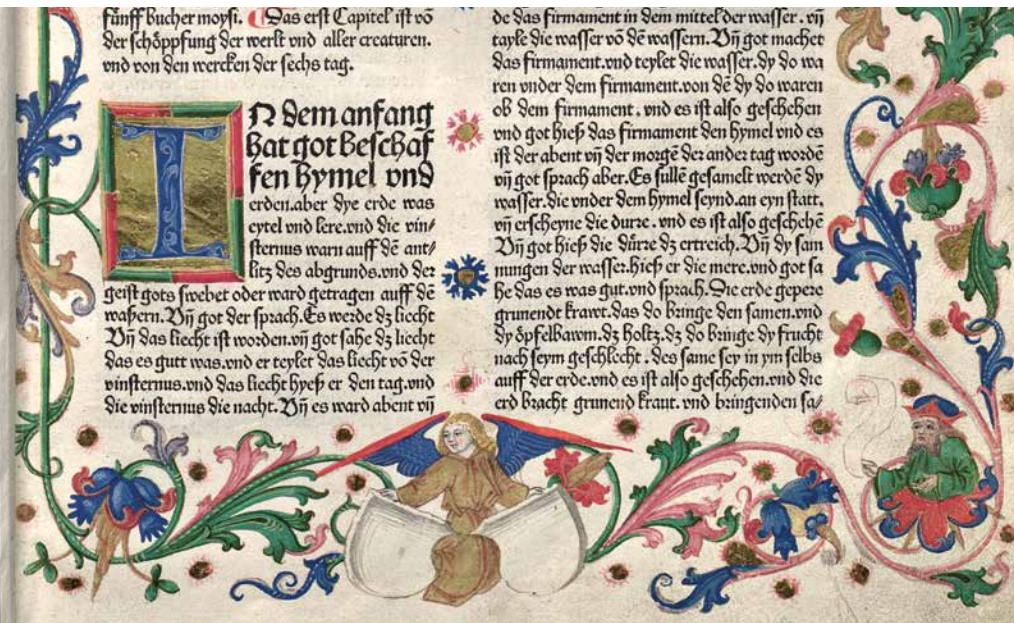 fünff bucher moysi. Das erst Capitel ist vō
der schöppfung der werlt vnd aller creaturen.
vnd von den wercken der sechs tag.
IN dem anfang
hat got beschaf
fen hymel vnd
erden.aber dye erde was
eytel vnd lere.vnd die vin⸗
sternus warn auff dē ant⸗
litz des abgrunds.vnd der
geist gots swebet oder ward getragen auff dē
waßern. Vn̄ got der sprach. Es werde dz liecht
Vn̄ das liecht ist worden.vn̄ got sahe dz liecht
das es gutt was.vnd er teylet das liecht vō der
vinsternus.vnd das liecht hyeß er den tag.vnd
die vinsternus die nacht. Vn̄ es ward abent vn̄
de das firmament in dem mittel der wasser. vn̄
tayle die wasser vō dē wassern. Vn̄ got machet
das firmament.vnd teylet die wasser.dy do wa
ren vnder dem firmament.von dē dy do waren
ob dem firmament. vnd es ist also geschehen
vnd got hieß das firmament den hymel vnd es
ist der abent vn̄ der morgē der ander tag wordē
vn̄ got sprach aber. Es sullē gesamelt werdē dy
wasser.die vnder dem hymel seynd.an eyn statt.
vn̄ erscheyne die durre. vnd es ist also geschehē
Vn̄ got hieß die dürre dz ertreich. Vn̄ dy sam
nungen der wasser.hieß er die mere.vnd got sa
he das es was gut.vnd sprach. Die erde gepere
grunendt krawt.das do bringe den samen.vnd
dy öpfelbawm.dz holtz.dz do bringe dy frucht
nach seym geschlecht. des same sey in ym selbs
auff der erde.vnd es ist also geschehen.vnd die
erd bracht grunend kraut. vnd bringenden sa⸗